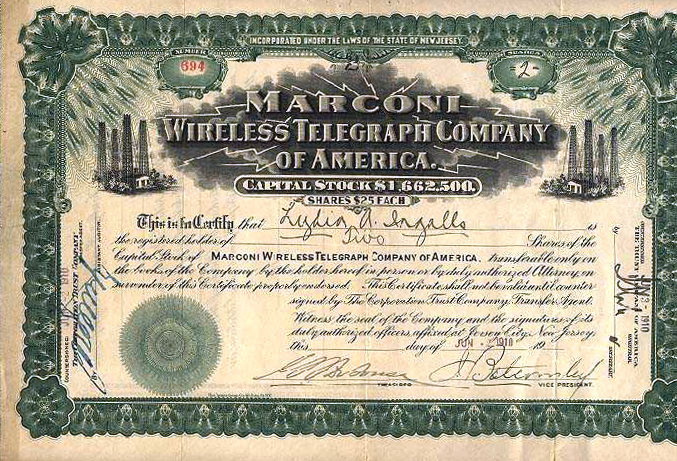 INCORPORATED UNDER THE LAWS OF THE STATE OF NEW JERSEY.
NUMBER
694
2
SHARES
-2-
MARCONI
WIRELESS TELEGRAPH COMPANY
OF AMERICA.
CAPITAL STOCK $1,662,500.
SHARES $25 EACH
This is to Certify that Lydia A. Ingalls is
the registered holder of Two Shares of the
Capital Stock of MARCONI WIRELESS TELEGRAPH COMPANY OF AMERICA, transferable only on
the books of the Company by the holder hereof in person or by duly authorized Attorney, on
surrender of this Certificate properly endorsed. This Certificate shall not be valid until counter
signed by The Corporation Trust Company, Transfer Agent.
Witness the seal of the Company and the signatures of its
duly authorized officers, affixed at Jersey City, New Jersey,
this day of JUN - 2 1910 19
TREASURER
VICE PRESIDENT.
COUNTERSIGNED
THE CORPORATION TRUST COMPANY
by
JUN 2 1910
OF AMERICA
REGISTRAR